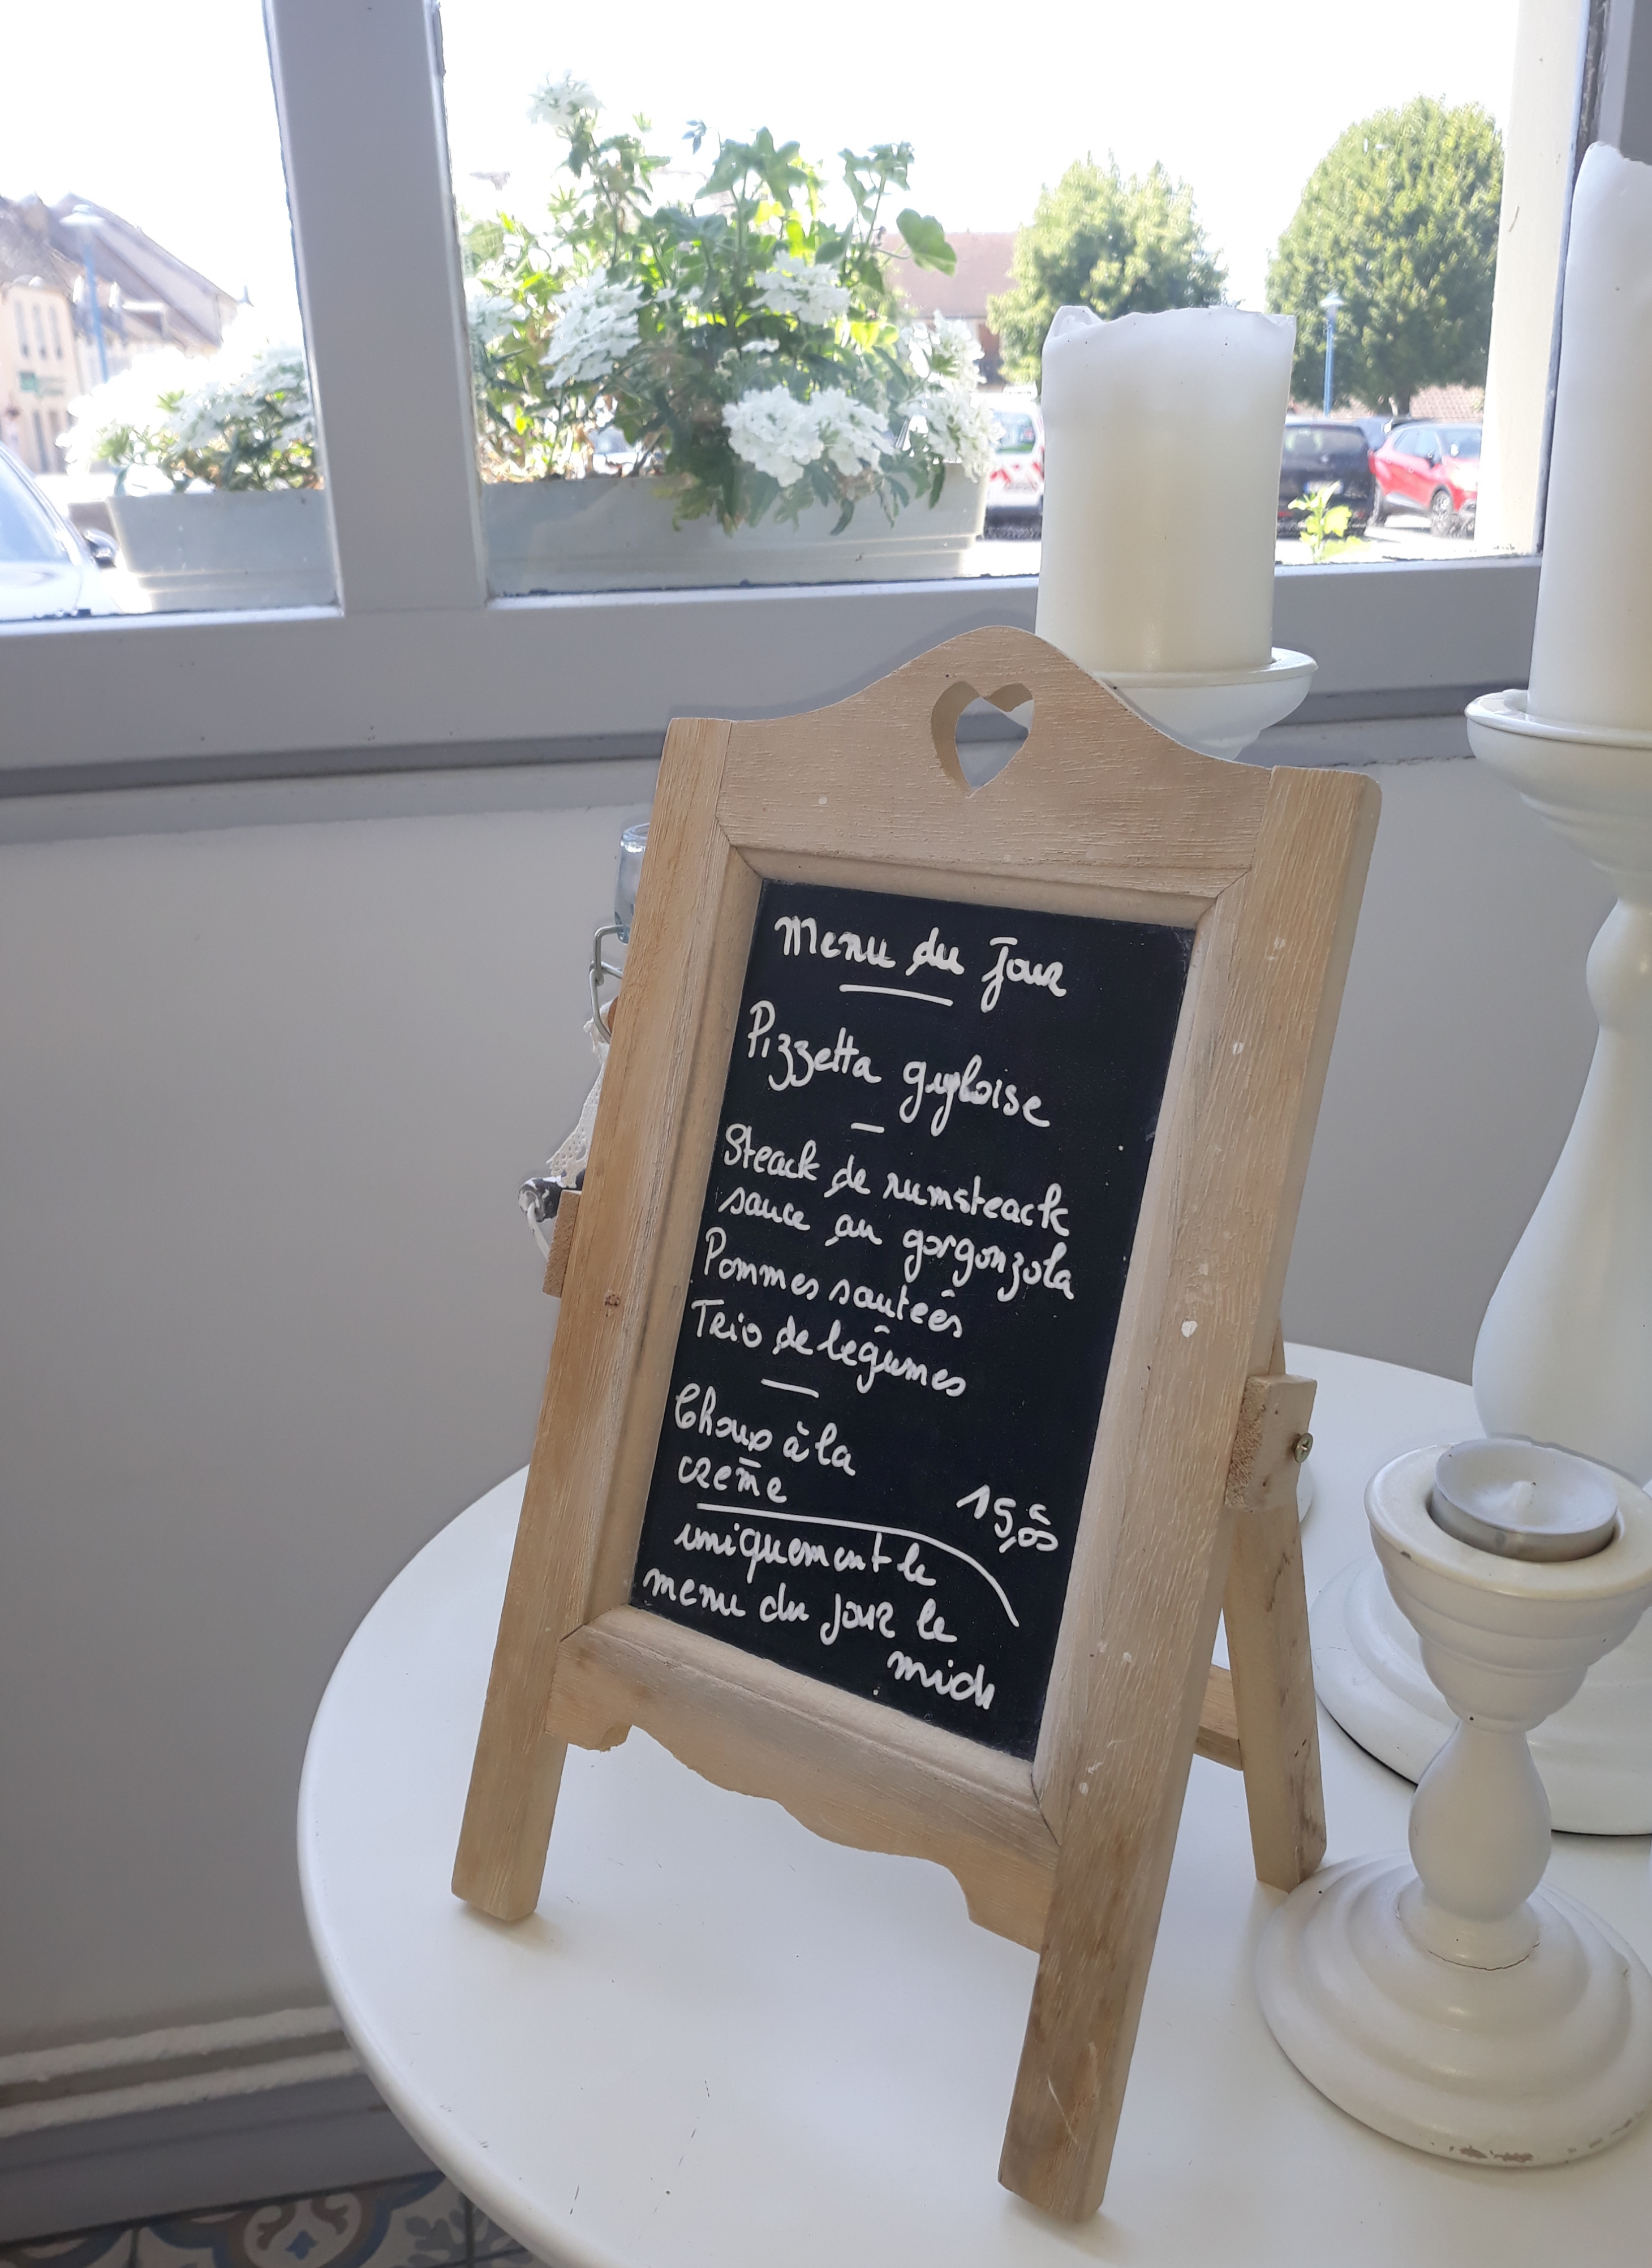 Menu du Jour
Pizzetta gyloise
Steack de rumsteack
sauce au gorgonzola
Pommes sauteés
Trio de legumes
Choux à la
creme
15,00€
uniquement le
menu du jour le
midi